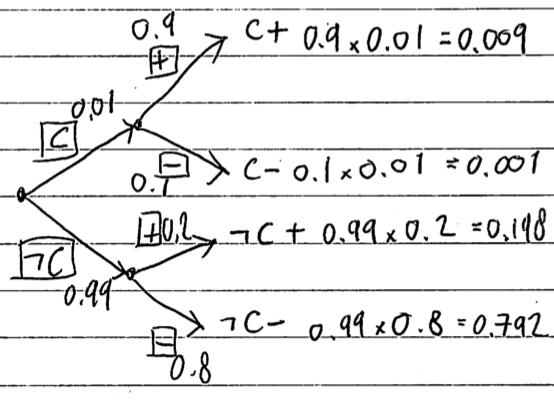 0.9
+
C+ 0.9 x 0.01 = 0.009
0.01
C
−
0.1
C- 0.1 x 0.01 = 0.001
+ 0.2
¬C + 0.99 x 0.2 = 0.198
¬C
0.99
¬C- 0.99 x 0.8 = 0.792
−
0.8